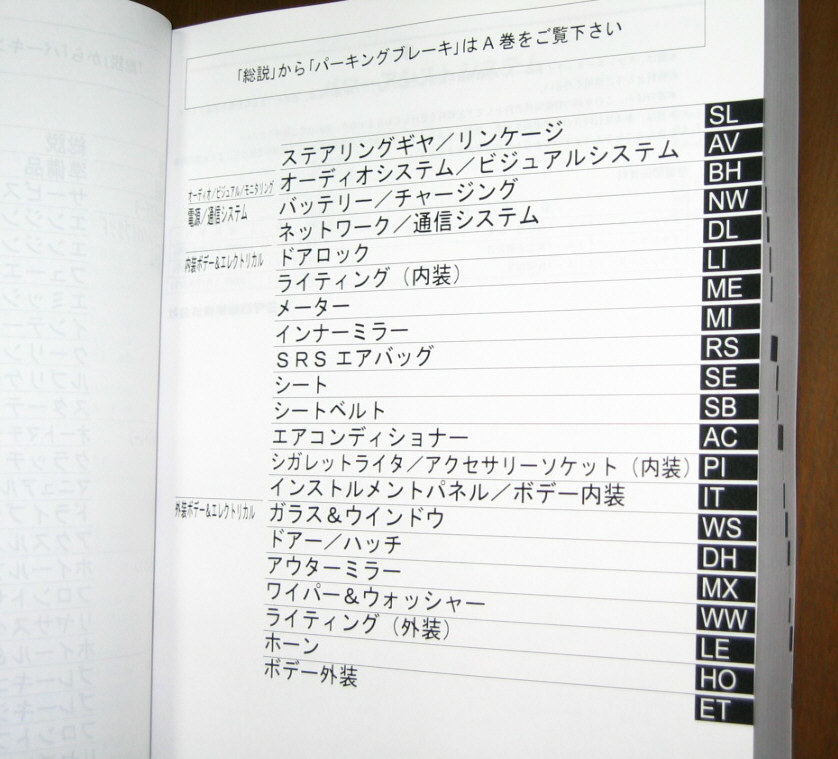 「総説」から「パーキングブレーキ」はA巻をご覧下さい
ステアリングギヤ／リンケージ SL
オーディオ／ビジュアル／モニタリング オーディオシステム／ビジュアルシステム AV
電源／通信システム バッテリー／チャージング BH
ネットワーク／通信システム NW
内装ボデー&エレクトリカル ドアロック DL
ライティング（内装） LI
メーター ME
インナーミラー MI
SRSエアバッグ RS
シート SE
シートベルト SB
エアコンディショナー AC
シガレットライタ／アクセサリーソケット（内装） PI
インストルメントパネル／ボデー内装 IT
外装ボデー&エレクトリカル ガラス&ウインドウ WS
ドアー／ハッチ DH
アウターミラー MX
ワイパー&ウォッシャー WW
ライティング（外装） LE
ホーン HO
ボデー外装 ET